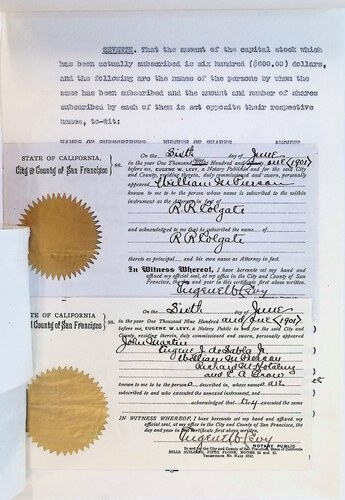 SEVENTH. That the amount of the capital stock which
has been actually subscribed is six hundred ($600.00) dollars,
and the following are the names of the persons by whom the
same has been subscribed and the amount and number of shares
subscribed by each of them is set opposite their respective
names, to-wit:
STATE OF CALIFORNIA,
City & County of San Francisco
ss.
On the Sixth day of June
in the year One Thousand Nine Hundred and one (1901)
before me, EUGENE W. LEVY, a Notary Public in and for the said City
and County, residing therein, duly commissioned and sworn, personally
appeared William M. Pierson
known to me to be the person whose name is subscribed to the within
instrument as the Attorney in fact of
R R Colgate
and acknowledged to me that he subscribed the name of
R R Colgate
thereto as principal and his own name as Attorney in fact.
In Witness Whereof, I have hereunto set my hand and
affixed my official seal, at my office in the City of San Francisco,
the day and year in this certificate first above written.
Eugene W. Levy
TE OF CALIFORNIA,
County of San Francisco
ss.
On the Sixth day of June
in the year One Thousand Nine Hundred and one (1901)
before me, EUGENE W. LEVY, a Notary Public in and for the said City
and County, residing therein, duly commissioned and sworn, personally appeared
John Martin
Eugene J. de Sabla Jr
William M. Pierson
Richard M. Hotaling
and
known to me to be the persons described in, whose names are
subscribed to and who executed the annexed instrument, and
acknowledged that they executed the same
IN WITNESS WHEREOF, I have hereunto set my hand and affixed my
official seal, at my office in the City and County of San Francisco,
the day and year in this certificate first above written.
Eugene W. Levy
NOTARY PUBLIC
In and for the City and County of San Francisco, State of California